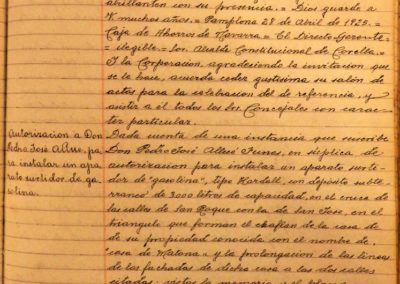 abrillanten con su presencia. = Dios guarde a
V. muchos años. = Pamplona 28 de Abril de 1925. =
Caja de Ahorros de Navarra = El Director Gerente =
= ilegible = Sor. Alcalde Constitucional de Corella. =
Y la Corporación, agradeciendo la invitación que
se le hace, acuerda ceder gustosima su salón de
actos para la celebración del de referencia, y
asistir a él todos los Sres. Concejales con carac-
ter particular.
Autorización a Don
Pedro José Allué, pa
ra instalar un apa-
rato surtidor de ga-
solina.
Dada cuenta de una instancia que suscribe
Don Pedro José Allué Funes, en súplica de
autorización para instalar un aparato surti-
dor de "gasolina", tipo Hardoll, con depósito subte-
rraneo de 3000 litros de capacidad, en el cruce de
las calles de San Roque con la de San José, en el
triángulo que forman el chaflan de la casa de
de su propiedad conocida con el nombre de
"casa de Matona" y la prolongación de las lineas
de las fachadas de dicha casa a las dos calles
citadas; vistos la memoria y el plano